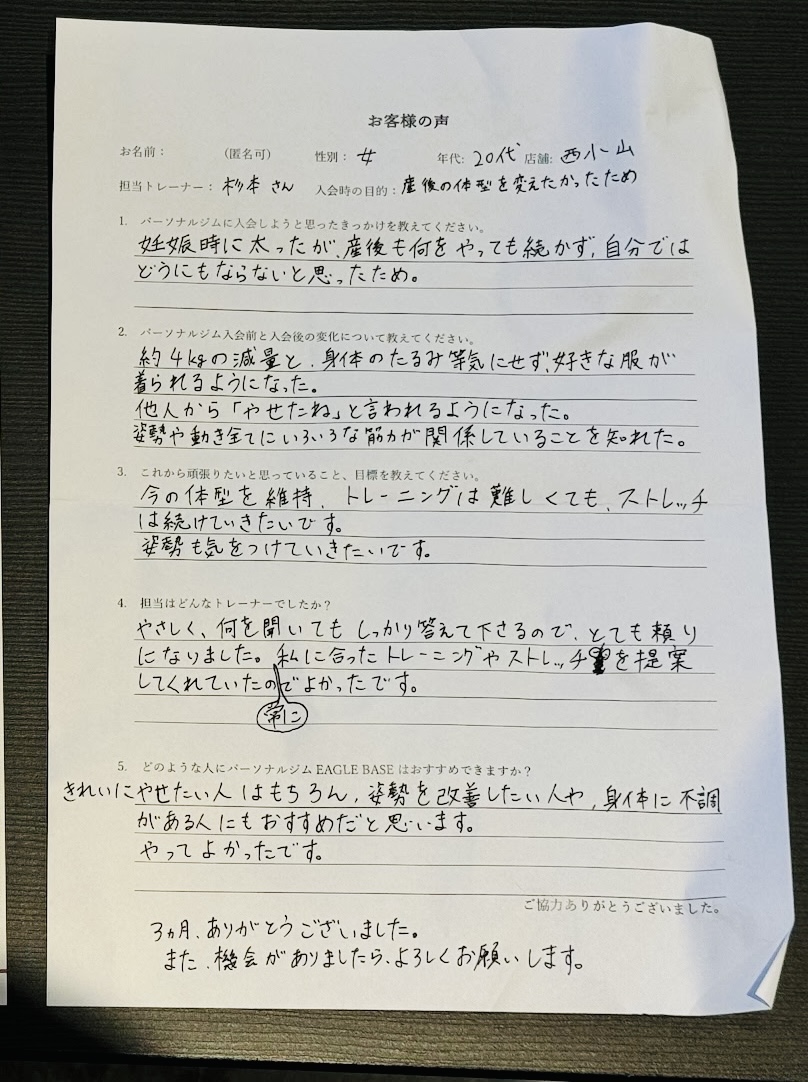 お客様の声
お名前： （匿名可） 性別：女 年代：20代 店舗：西小山
担当トレーナー：杉本さん 入会時の目的：産後の体型を変えたかったため
1. パーソナルジムに入会しようと思ったきっかけを教えてください。
妊娠時に太ったが、産後も何をやっても続かず、自分では
どうにもならないと思ったため。
2. パーソナルジム入会前と入会後の変化について教えてください。
約4kgの減量と、身体のたるみ等気にせず、好きな服が
着られるようになった。
他人から「やせたね」と言われるようになった。
姿勢や動き全てにいろいろな筋力が関係していることを知れた。
3. これから頑張りたいと思っていること、目標を教えてください。
今の体型を維持、トレーニングは難しくても、ストレッチ
は続けていきたいです。
姿勢も気をつけていきたいです。
4. 担当はどんなトレーナーでしたか？
やさしく、何を聞いてもしっかり答えて下さるので、とても頼り
になりました。常に私に合ったトレーニングやストレッチを提案
してくれていたのでよかったです。
5. どのような人にパーソナルジム EAGLE BASE はおすすめできますか？
きれいにやせたい人はもちろん、姿勢を改善したい人や、身体に不調
がある人にもおすすめだと思います。
やってよかったです。
ご協力ありがとうございました。
3ヵ月、ありがとうございました。
また、機会がありましたら、よろしくお願いします。